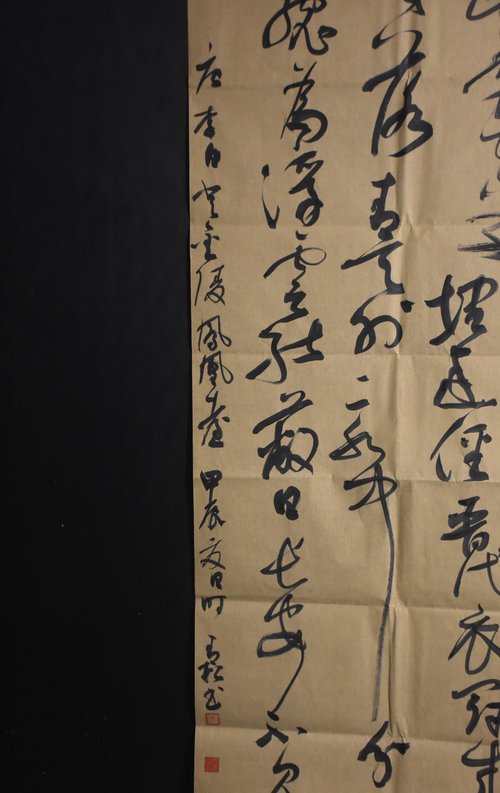 埋幽徑晉代衣冠成
落青天外二水中分
總為浮雲能蔽日長安不見
唐李白登金陵鳳凰臺 甲辰夏日时 青松书